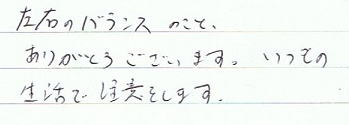 左右のバランスのこと、
ありがとうございます。いつもの
生活で注意をします。